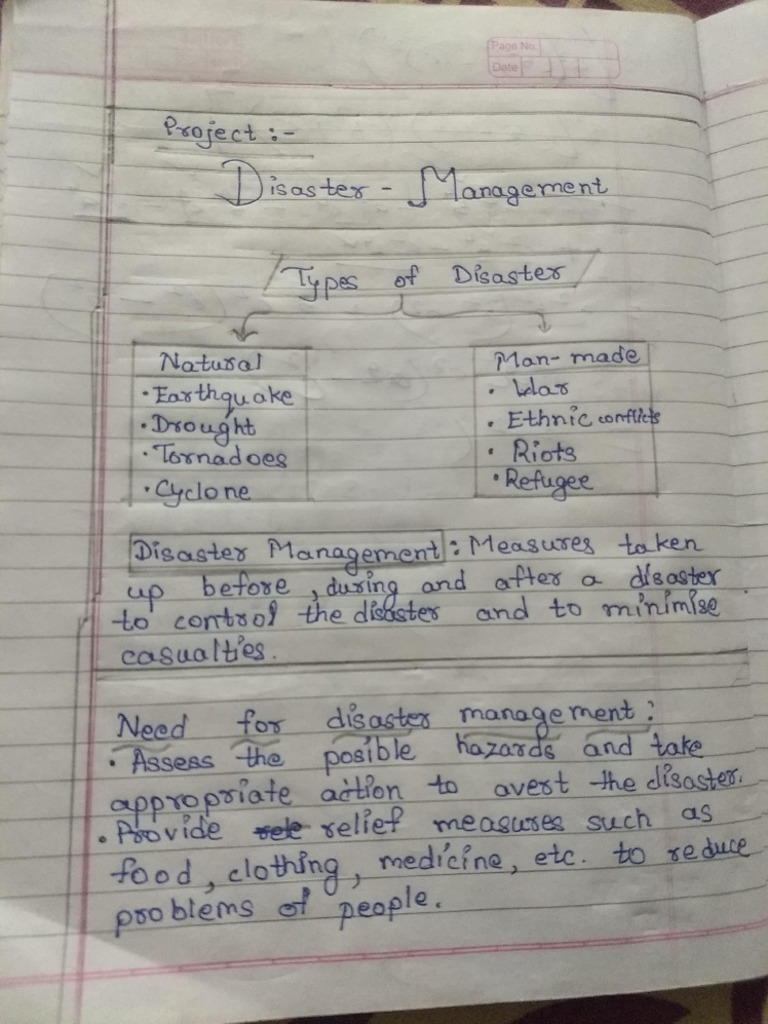 Page No.
Date
Project :-
Disaster - Management
Types of Disaster
Natural
• Earthquake
• Drought
• Tornadoes
• Cyclone
Man-made
• War
• Ethnic conflicts
• Riots
• Refugee
Disaster Management : Measures taken
up before, during and after a disaster
to control the disaster and to minimise
casualties.
Need for disaster management :
• Assess the posible hazards and take
appropriate action to avert the disaster.
• Provide rele relief measures such as
food, clothing, medicine, etc. to reduce
problems of people.